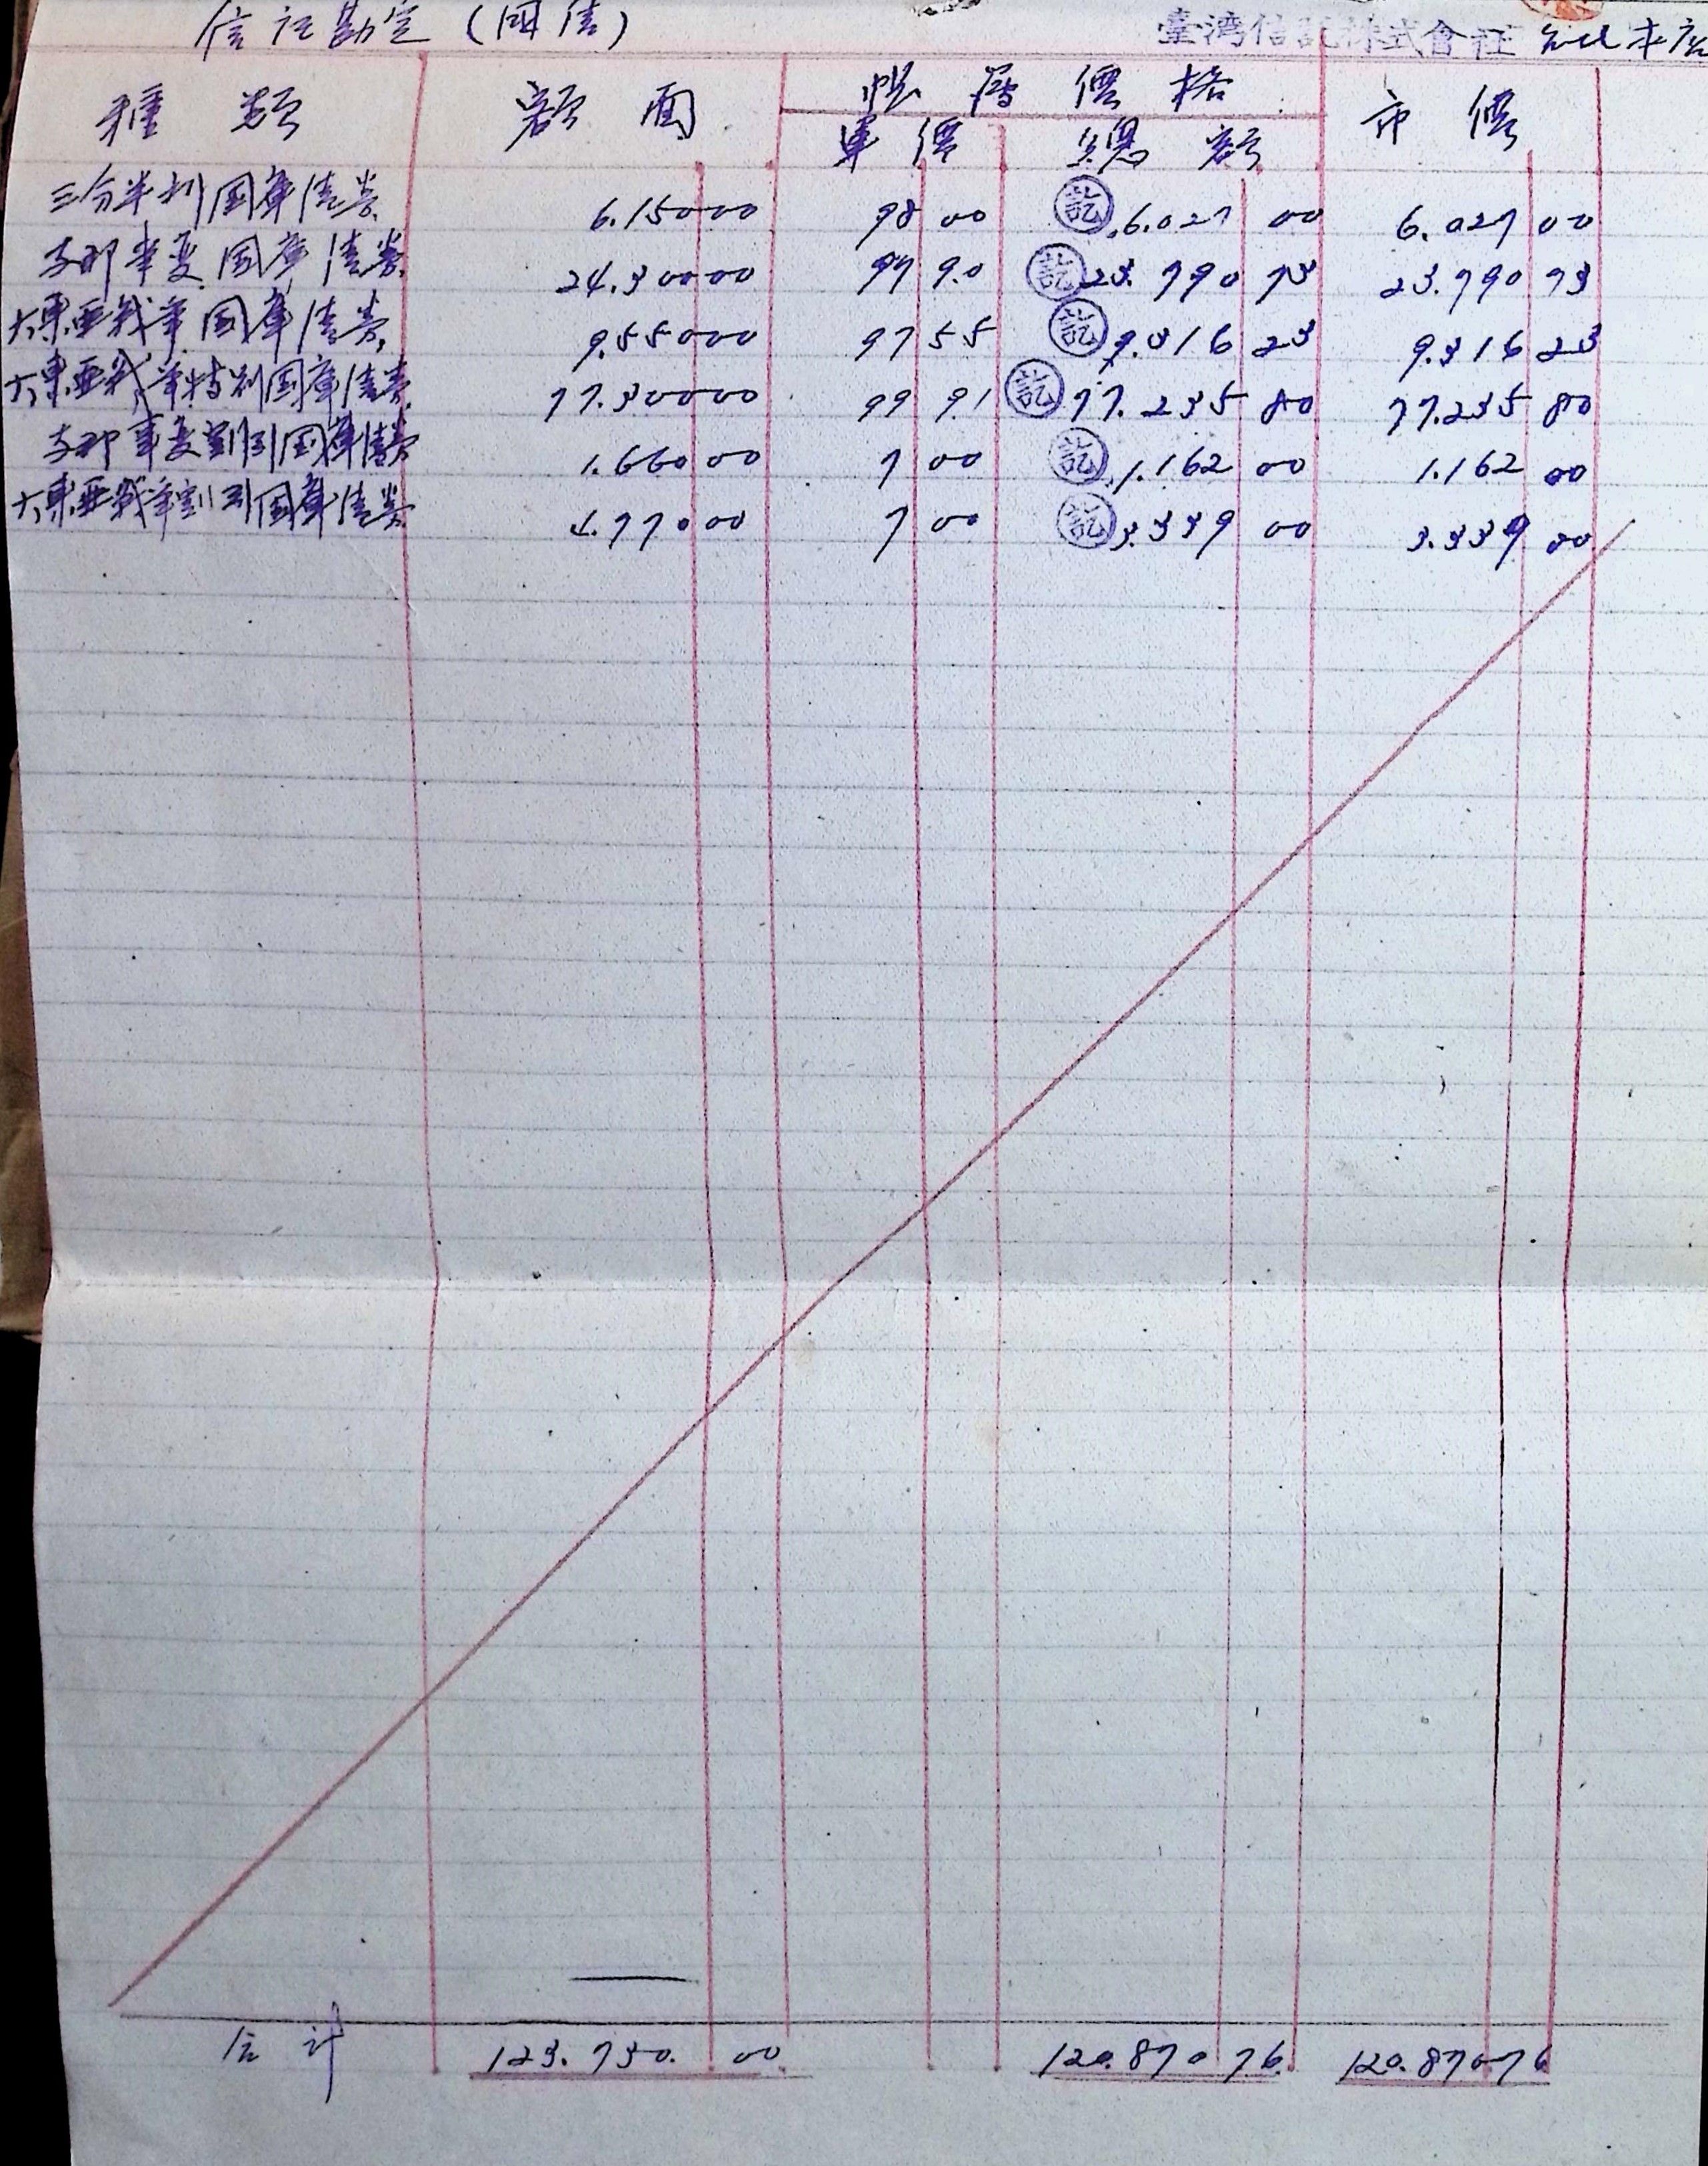 信託勘定 (国債) 臺湾信託株式會社 台北本店
種類 額面 帳簿價格 市價
單價 總額
三分半利国庫債券 6.150 00 98 00 訖 6.027 00 6.027 00
支那事変国庫債券 24.300 00 97 90 訖 23.790 73 23.790 73
大東亜戦争国庫債券 9.550 00 97 55 訖 9.316 23 9.316 23
大東亜戦争特別国庫債券 77.300 00 99 91 訖 77.235 80 77.235 80
支那事変割引国庫債券 1.660 00 7 00 訖 1.162 00 1.162 00
大東亜戦争割引国庫債券 4.770 00 7 00 訖 3.339 00 3.339 00
合計 123.730. 00 120.870 76 120.870 76